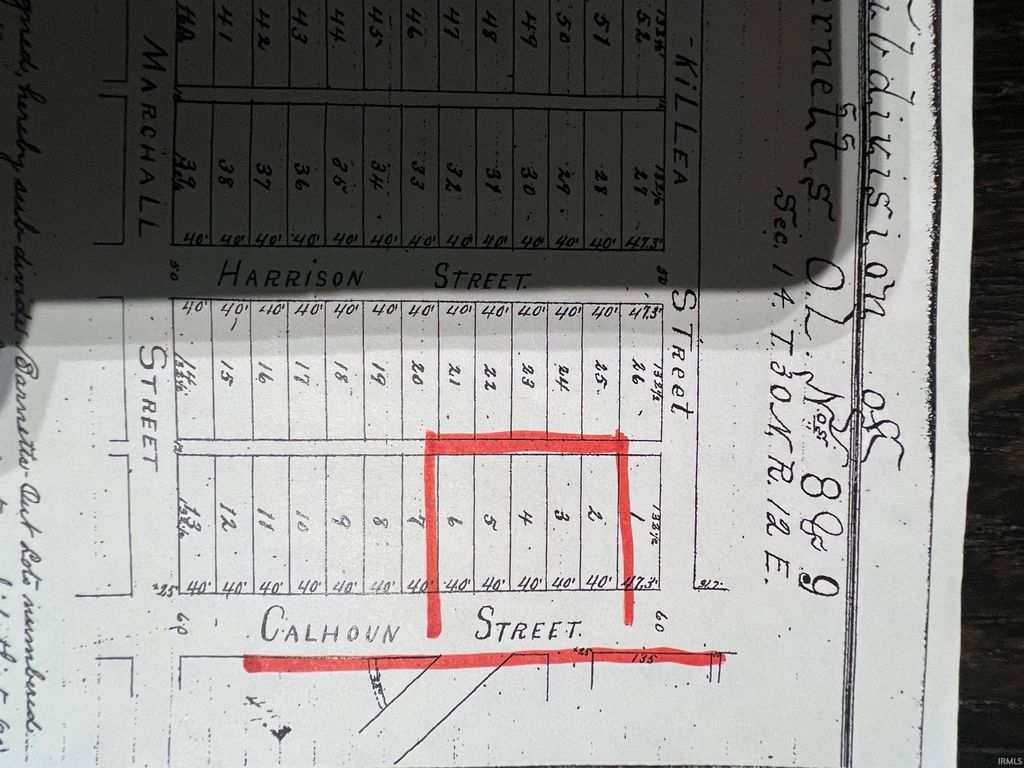 bdivision of
rnetts O.L. Nos 8 & 9
Sec. 14 T. 30 N. R. 12 E.
KILLEA STREET
MARCHALL STREET
41 42 43 44 45 46 47 48 49 50 51 52
132½
39 38 37 36 35 34 33 32 31 30 29 28 27
132½
40' 40' 40' 40' 40' 40' 40' 40' 40' 40' 40' 40' 47.3'
50 HARRISON STREET. 50
40' 40' 40' 40' 40' 40' 40' 40' 40' 40' 40' 40' 47.3'
14 15 16 17 18 19 20 21 22 23 24 25 26
132½ 132½
13 12 11 10 9 8 7 6 5 4 3 2 1
132½ 132½
40' 40' 40' 40' 40' 40' 40' 40' 40' 40' 40' 40' 47.3'
60 CALHOUN STREET. 60
135
gned, hereby, sub-divides Barnetts Out Lots numbered
IRMLS